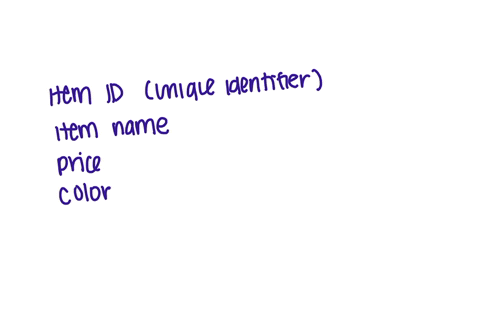 Item ID (unique identifier)
item name
price
color